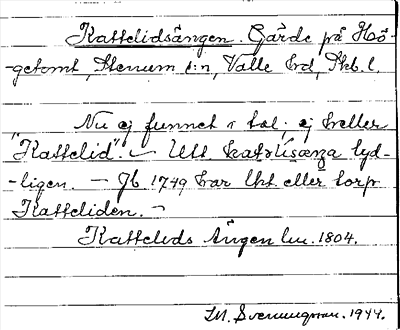 Kattelidsängen. Gärde på Hö-
-getomt, Stenum s:n, Valle hd, Skb. l.
Nu ej funnet i tal; ej heller
"Kattelid". – Utt. lyd-
-ligen. – Jb 1749 har lht. eller torp
Katteliden. –
Kattelids Ängen lm. 1804.
M. Svenungsson. 1944.